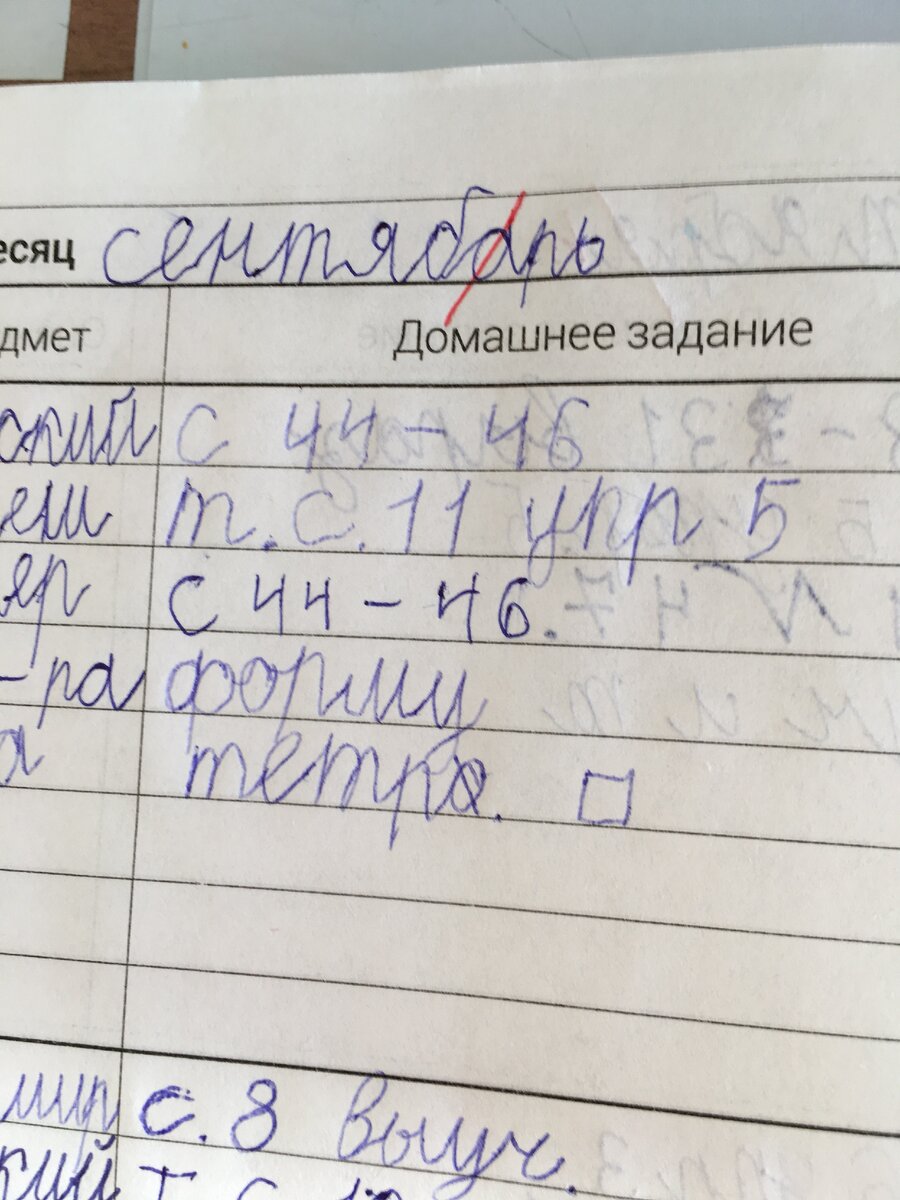 есяц сентябарь
дмет Домашнее задание
ский с 44-46
еш т.с.11 упр 5
яр с 44-46.
-ра форму
а тетра. □
мир с. 8 выуч.
кий т с